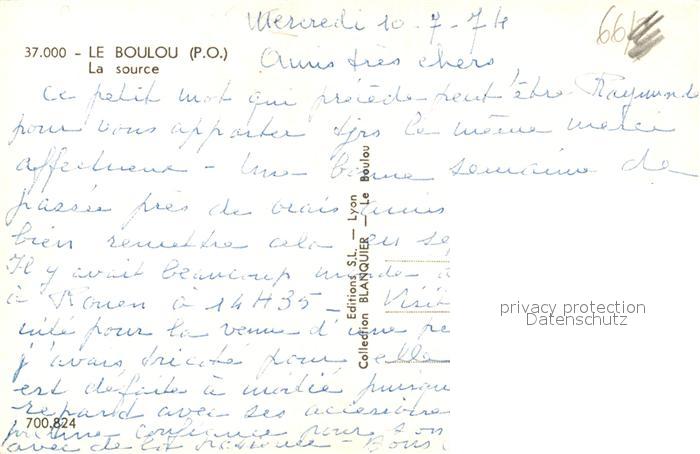 Mercredi 10-7-74
37.000 - LE BOULOU (P.O.)
La source
Amis très chers
Ce petit mot qui précède peut être Raymonde
pour vous apporter tjrs le même merci
affectueux - Une bonne semaine de
passée près de vrais amis
bien remettre cela en se
Il y avait beaucoup monde à
à Rouen à 14H35 - Visit
pour la venue d'une pe
j'avais tricoté pour elle
est défaite à moitié puisqu
repart avec ses accessoire
confiance pour son
avec de la - Bons
700.824
Editions S.L. — Lyon
Collection BLANQUIER — Le Boulou
privacy protection
Datenschutz